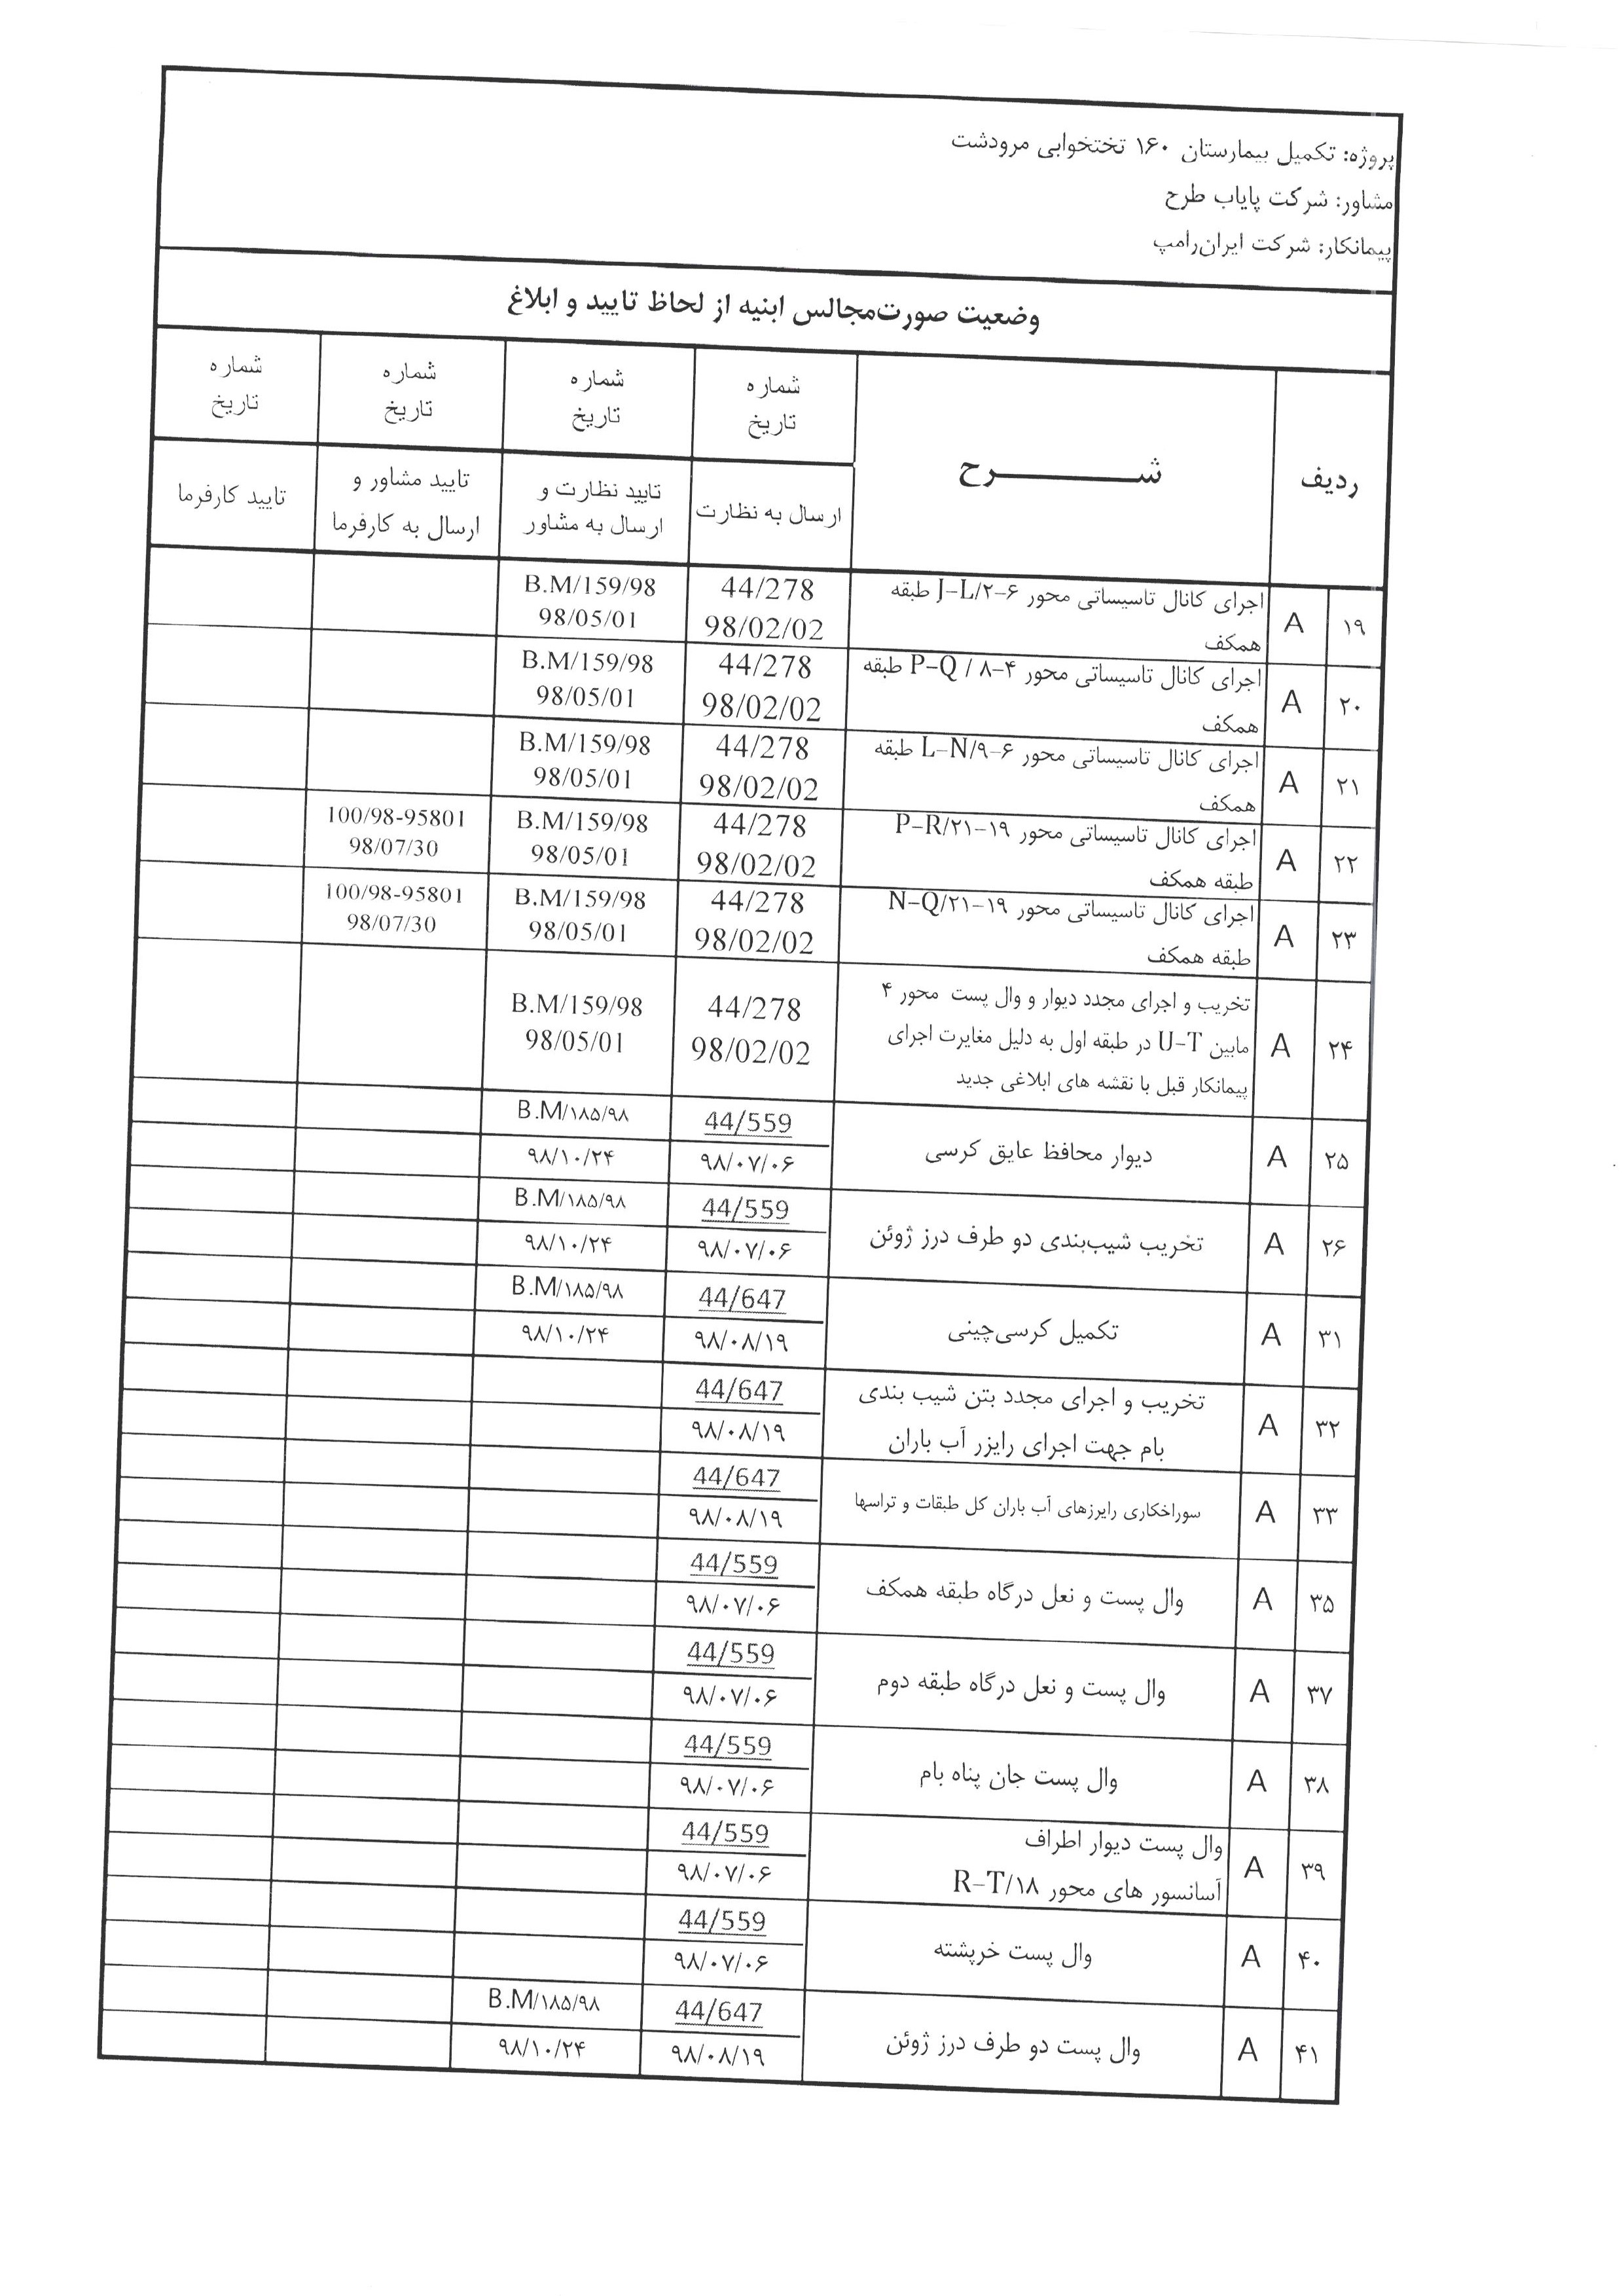 پروژه: تکمیل بیمارستان ۱۶۰ تختخوابی مرودشت
مشاور: شرکت پایاب طرح
پیمانکار: شرکت ایران‌رامپ
وضعیت صورت‌مجالس ابنیه از لحاظ تایید و ابلاغ
ردیف
شـــــــرح
شماره
تاریخ
ارسال به نظارت
شماره
تاریخ
تایید نظارت و
ارسال به مشاور
شماره
تاریخ
تایید مشاور و
ارسال به کارفرما
شماره
تاریخ
تایید کارفرما
۱۹ A اجرای کانال تاسیساتی محور J-L/۲-۶ طبقه
همکف
44/278
98/02/02
B.M/159/98
98/05/01
۲۰ A اجرای کانال تاسیساتی محور P-Q / ۸-۴ طبقه
همکف
44/278
98/02/02
B.M/159/98
98/05/01
۲۱ A اجرای کانال تاسیساتی محور L-N/۹-۶ طبقه
همکف
44/278
98/02/02
B.M/159/98
98/05/01
۲۲ A اجرای کانال تاسیساتی محور P-R/۲۱-۱۹
طبقه همکف
44/278
98/02/02
B.M/159/98
98/05/01
100/98-95801
98/07/30
۲۳ A اجرای کانال تاسیساتی محور N-Q/۲۱-۱۹
طبقه همکف
44/278
98/02/02
B.M/159/98
98/05/01
100/98-95801
98/07/30
۲۴ A تخریب و اجرای مجدد دیوار و وال پست محور ۴
مابین U-T در طبقه اول به دلیل مغایرت اجرای
پیمانکار قبل با نقشه های ابلاغی جدید
44/278
98/02/02
B.M/159/98
98/05/01
۲۵ A دیوار محافظ عایق کرسی
44/559
۹۸/۰۷/۰۶
B.M/۱۸۵/۹۸
۹۸/۱۰/۲۴
۲۶ A تخریب شیب‌بندی دو طرف درز ژوئن
44/559
۹۸/۰۷/۰۶
B.M/۱۸۵/۹۸
۹۸/۱۰/۲۴
۳۱ A تکمیل کرسی‌چینی
44/647
۹۸/۰۸/۱۹
B.M/۱۸۵/۹۸
۹۸/۱۰/۲۴
۳۲ A تخریب و اجرای مجدد بتن شیب بندی
بام جهت اجرای رایزر آب باران
44/647
۹۸/۰۸/۱۹
۳۳ A سوراخکاری رایزرهای آب باران کل طبقات و تراسها
44/647
۹۸/۰۸/۱۹
۳۵ A وال پست و نعل درگاه طبقه همکف
44/559
۹۸/۰۷/۰۶
۳۷ A وال پست و نعل درگاه طبقه دوم
44/559
۹۸/۰۷/۰۶
۳۸ A وال پست جان پناه بام
44/559
۹۸/۰۷/۰۶
۳۹ A وال پست دیوار اطراف
آسانسور های محور R-T/۱۸
44/559
۹۸/۰۷/۰۶
۴۰ A وال پست خرپشته
44/559
۹۸/۰۷/۰۶
۴۱ A وال پست دو طرف درز ژوئن
44/647
۹۸/۰۸/۱۹
B.M/۱۸۵/۹۸
۹۸/۱۰/۲۴